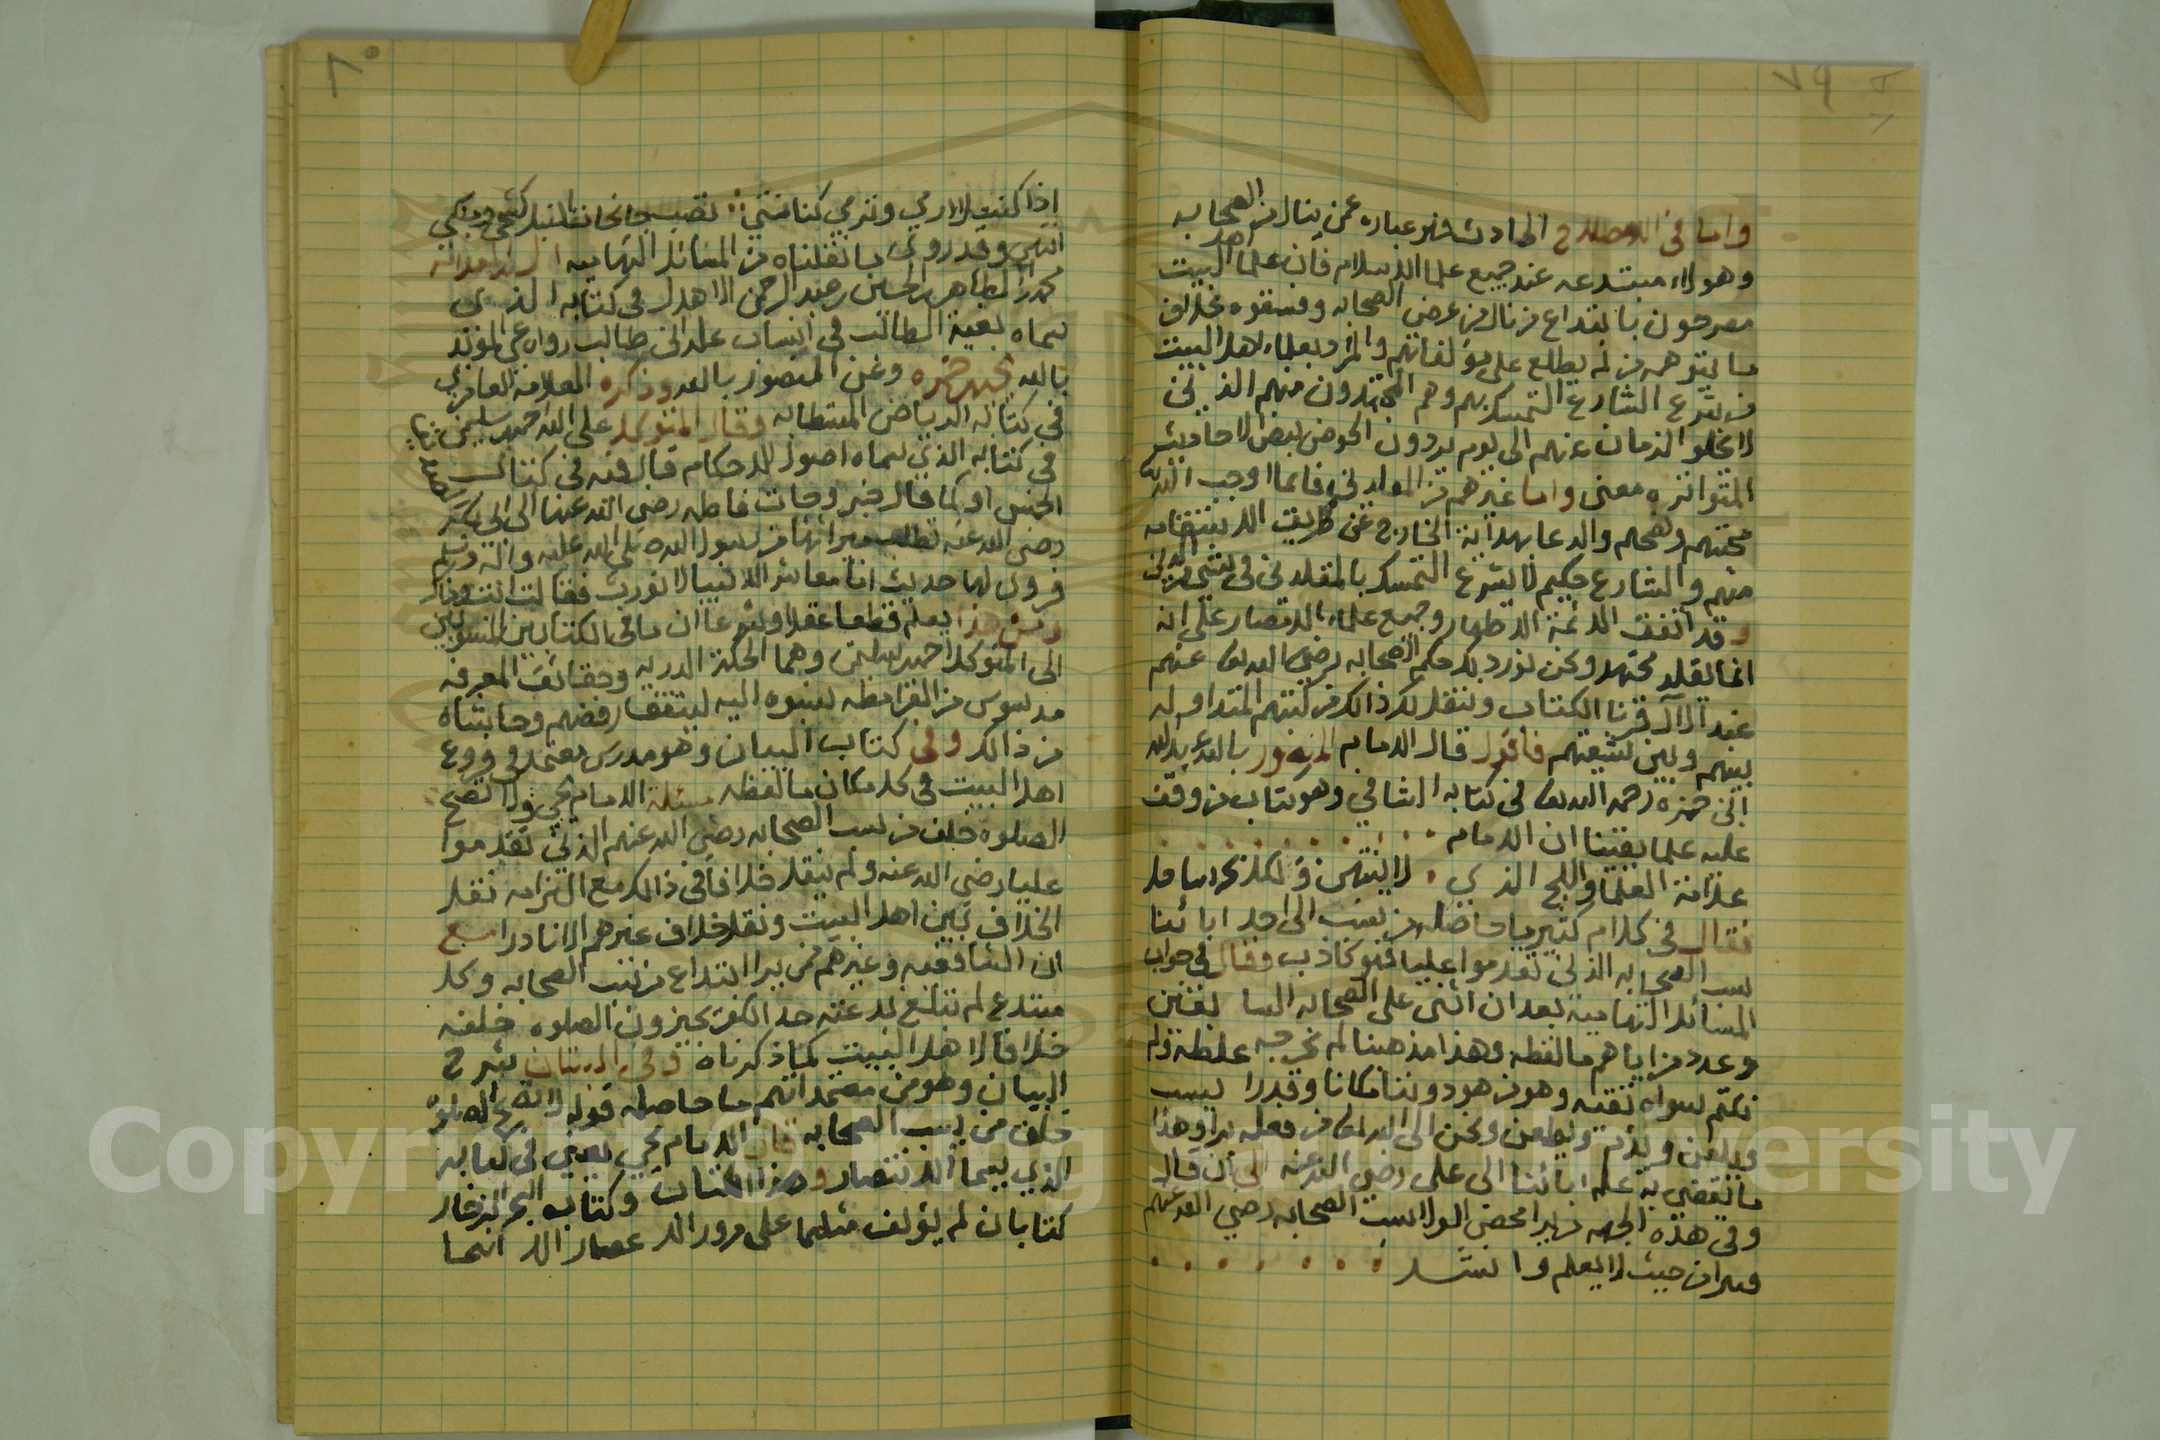 ٧٩
واما فى الاصطلاح الحادث فهو عباره عمن ينال من الصحابه
وهولاء مبتدعه عند جميع علما الاسلام فان علما اهل البيت
مصرحون بابتداع من نال من عرض الصحابه وفسقوه بخلاف
ما يتوهمه من لم يطلع على مؤلفاتهم والمراد بعلماء اهل البيت
من شرع الشارع التمسك بهم وهم المجتهدون منهم الذين
لا يخلوا الزمان عنهم الى يوم يردون الحوض بنص الاحاديث
المتواتره معنى واما غيرهم من المقلدين فانما اوجب الله
محبتهم ونصحهم والدعا بهداية الخارج عن طريق الاستقامه
منهم والشارع حكيم لا يشرع التمسك بالمقلدين فى شيء من الدين
وقد اتفقت الائمة الاطهار وجميع علماء الامصار على انه
انما يقلد مجتهد ونحن نورد لك حكم الصحابه رضي الله عنهم
عند الآل قرنا الكتاب وننقل لك ذالك من كتبهم المتداوله
بينهم وبين شيعتهم فاقول قال الامام المنصور بالله عبد الله
ابن حمزه رحمه الله فى كتابه الشافي وهو كتاب من وقف
عليه علم يقينا ان الامام
علامة العلما واللج الذي لا ينتهي ولكل بحر ساحل
فقال فى كلام كثير ما حاصله من نسب الى احد ابائنا
سب الصحابه الذين تقدموا عليا فهو كاذب وقال فى جواب
المسائل التهامية بعد ان اثنى على الصحابه السابقين
وعدد مزاياهم ما لفظه وهذا مذهبنا لم نخرجه غلطة ولم
نكتم سواه تقيه وهو من هو دوننا مكانا وقدرا يسب
ويلعن ويذم ويطعن ونحن الى الله من فعله برا وهذا
ما يقضي به علم ابائنا الى على رضي الله عنه الى ان قال
وفى هذه الجهه من يرا محض الولا سب الصحابه رضي الله عنهم
والبراء منهم حيث لا يعلم وانشد
٨٠
اذا كنت لا ارمي وترمي كنانتي تصب جانحات النبل كشحي ومنكبي
انتهى وقد روى ما نقلناه من المسائل التهاميه
محمد الطاهر بن الحسين بن عبد الرحمن الاهدل فى كتابه الذي
سماه بغية الطالب فى انساب على بن ابى طالب رواه عن المؤيد
بالله يحيى بن حمزه وعن المنصور بالله وذكره العلامه العامري
في كتابه الرياض المستطابه وقال المتوكل على الله احمد بن سليمن
فى كتابه الذي سماه اصول الاحكام قال فيه فى كتاب
الخمس او كما قال خبر وجات فاطمه رضي الله عنها الى ابى بكر
رضي الله عنه تطلب ميراثها من رسول الله صلى الله عليه واله وسلم
فروى لها حديث انا معاشر الانبيا لا نورث فقالت انت وذاك
ومن هذا يعلم قطعا عقلا وشرعا ان ما فى الكتابين المنسوبين
الى المتوكل احمد بن سليمن وهما الحكمة الدريه وحقائق المعرفه
مدسوس من القرامطه نسبوه اليه لينفقا رفضهم وحاشاه
من ذالك وفى كتاب البيان وهو مدرس معتمد فى فروع
اهل البيت فى كل مكان ما لفظه مسئلة الامام يحي ولا تصح
الصلوه خلف من يسب الصحابه رضي الله عنهم الذين تقدموا
عليا رضي الله عنه ولم ينقل خلافا فى ذالك مع التزامه نقل
الخلاف بين اهل البيت ونقل خلاف غيرهم الا نادرا مع
ان الشافعيه وغيرهم ممن يرا ابتداع من سب الصحابه وكل
مبتدع لم تبلغ بدعته حد الكفر يجيزون الصلوه خلفه
خلافا لاهل البيت كما ذكرناه وفى البستان شرح
البيان وهو من معتمداتهم ما حاصله قوله لا تصح الصلوة
خلف من يسب الصحابه قال الامام يحي يعني فى كتابه
الذي يسما الانتصار وهذا الكتاب وكتاب البحر الزخار
كتابان لم يؤلف مثلهما على مرور الاعصار الا انهما